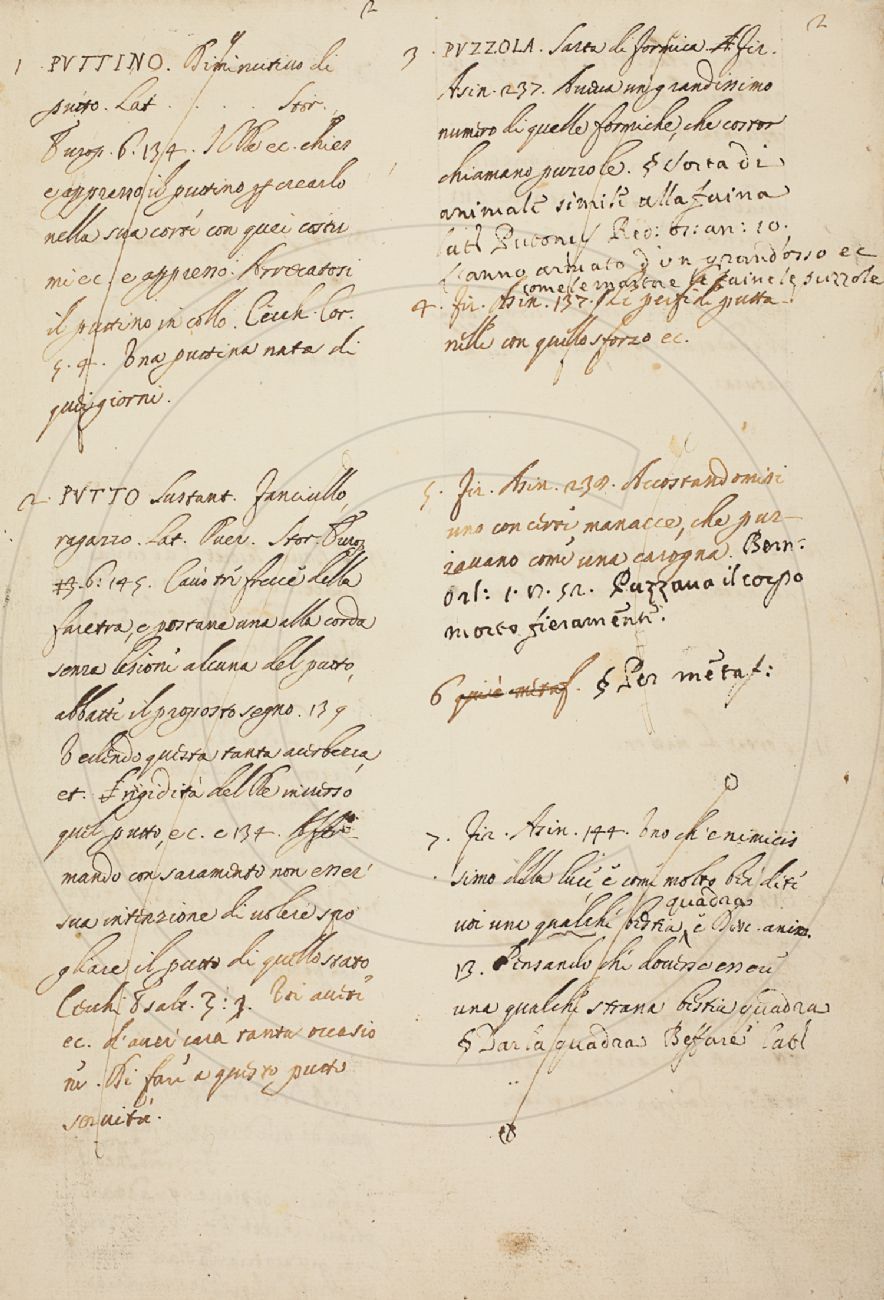 2
1. PVTTINO. Diminutiuo di
putto. Lat . . . . Stor.
Europ. 6. 134. Il Re ec. chiese
e appresso il puttino per crearlo
nella sua corte con quei costu
mi ec. e appresso. Arrecatosi
il puttino in collo. Cecch. Cor.
5. 4. Una puttina nata di
quei giorni.
2. PVTTO Sustant. Fanciullo,
ragazzo. Lat. Puer. Stor. Europ
6. 145. Cauò tre frecce della
faretra, e postane una alla corda
senza lesione alcuna del putto,
abbattè il proposto segno. 139
Vedendo questa tanta acerbezza,
et frigidità del Re inuerso
quel putto, ec. e 134. Affer
mando con saramento non esser
sua intenzione di uolere spo
gliare il putto di quello stato
Cecch. Esalt. 3: 3. Voi auete
ec. d'auer cara tanta occasio
ne. Di fare a questo putto
seruitù.
2
3. PVZZOLA. Sorta di formica. Fir.
Asin. 237. Aueua un grandissimo
numero di quelle formiche, che costor
chiamano puzzole. § Sorta di
animale simile alla faina
lat. Putorius Red: oss: an: 10.
l'anno armato d'un grand'osso ec
come le martore le faine le puzzole
4. Fir. Asin. 137. Le perfide putta
nelle con quello sforzo ec.
5. Fir. Asin. 238. Accostandomisi
uno con certe manacce, che puz-
zauano come una carogna. Bern:
Orl: 1. 17. 52. Puzzaua il corpo
morto fieramente.
6 qui è metaf. § Per metaf:
7. Fir. Asin. 144. Uno ch'è nimicis
simo della luce è come molto ben dite
uoi una qualche bestia quadra, e Disc. anim.
13. Pensando che douesse essere
una qualche strana bestia quadra
§ Dar la quadra Beffare lat.